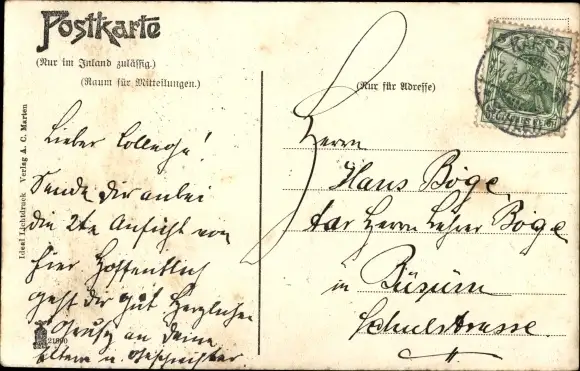 Postkarte
(Nur im Inland zulässig.)
(Raum für Mitteilungen.)
(Nur für Adresse)
Ideal Lichtdruck Verlag A. C. Marten
21890
Lieber College!
Sende Dir anbei
die 2te Ansicht von
hier Hoffentlich
geht Dir gut Herzlichen
Gruß an Deine
Eltern u. Geschwister
Herrn
Hans Böge
Herrn Lehrer Böge
in Büsum
Schulstrasse